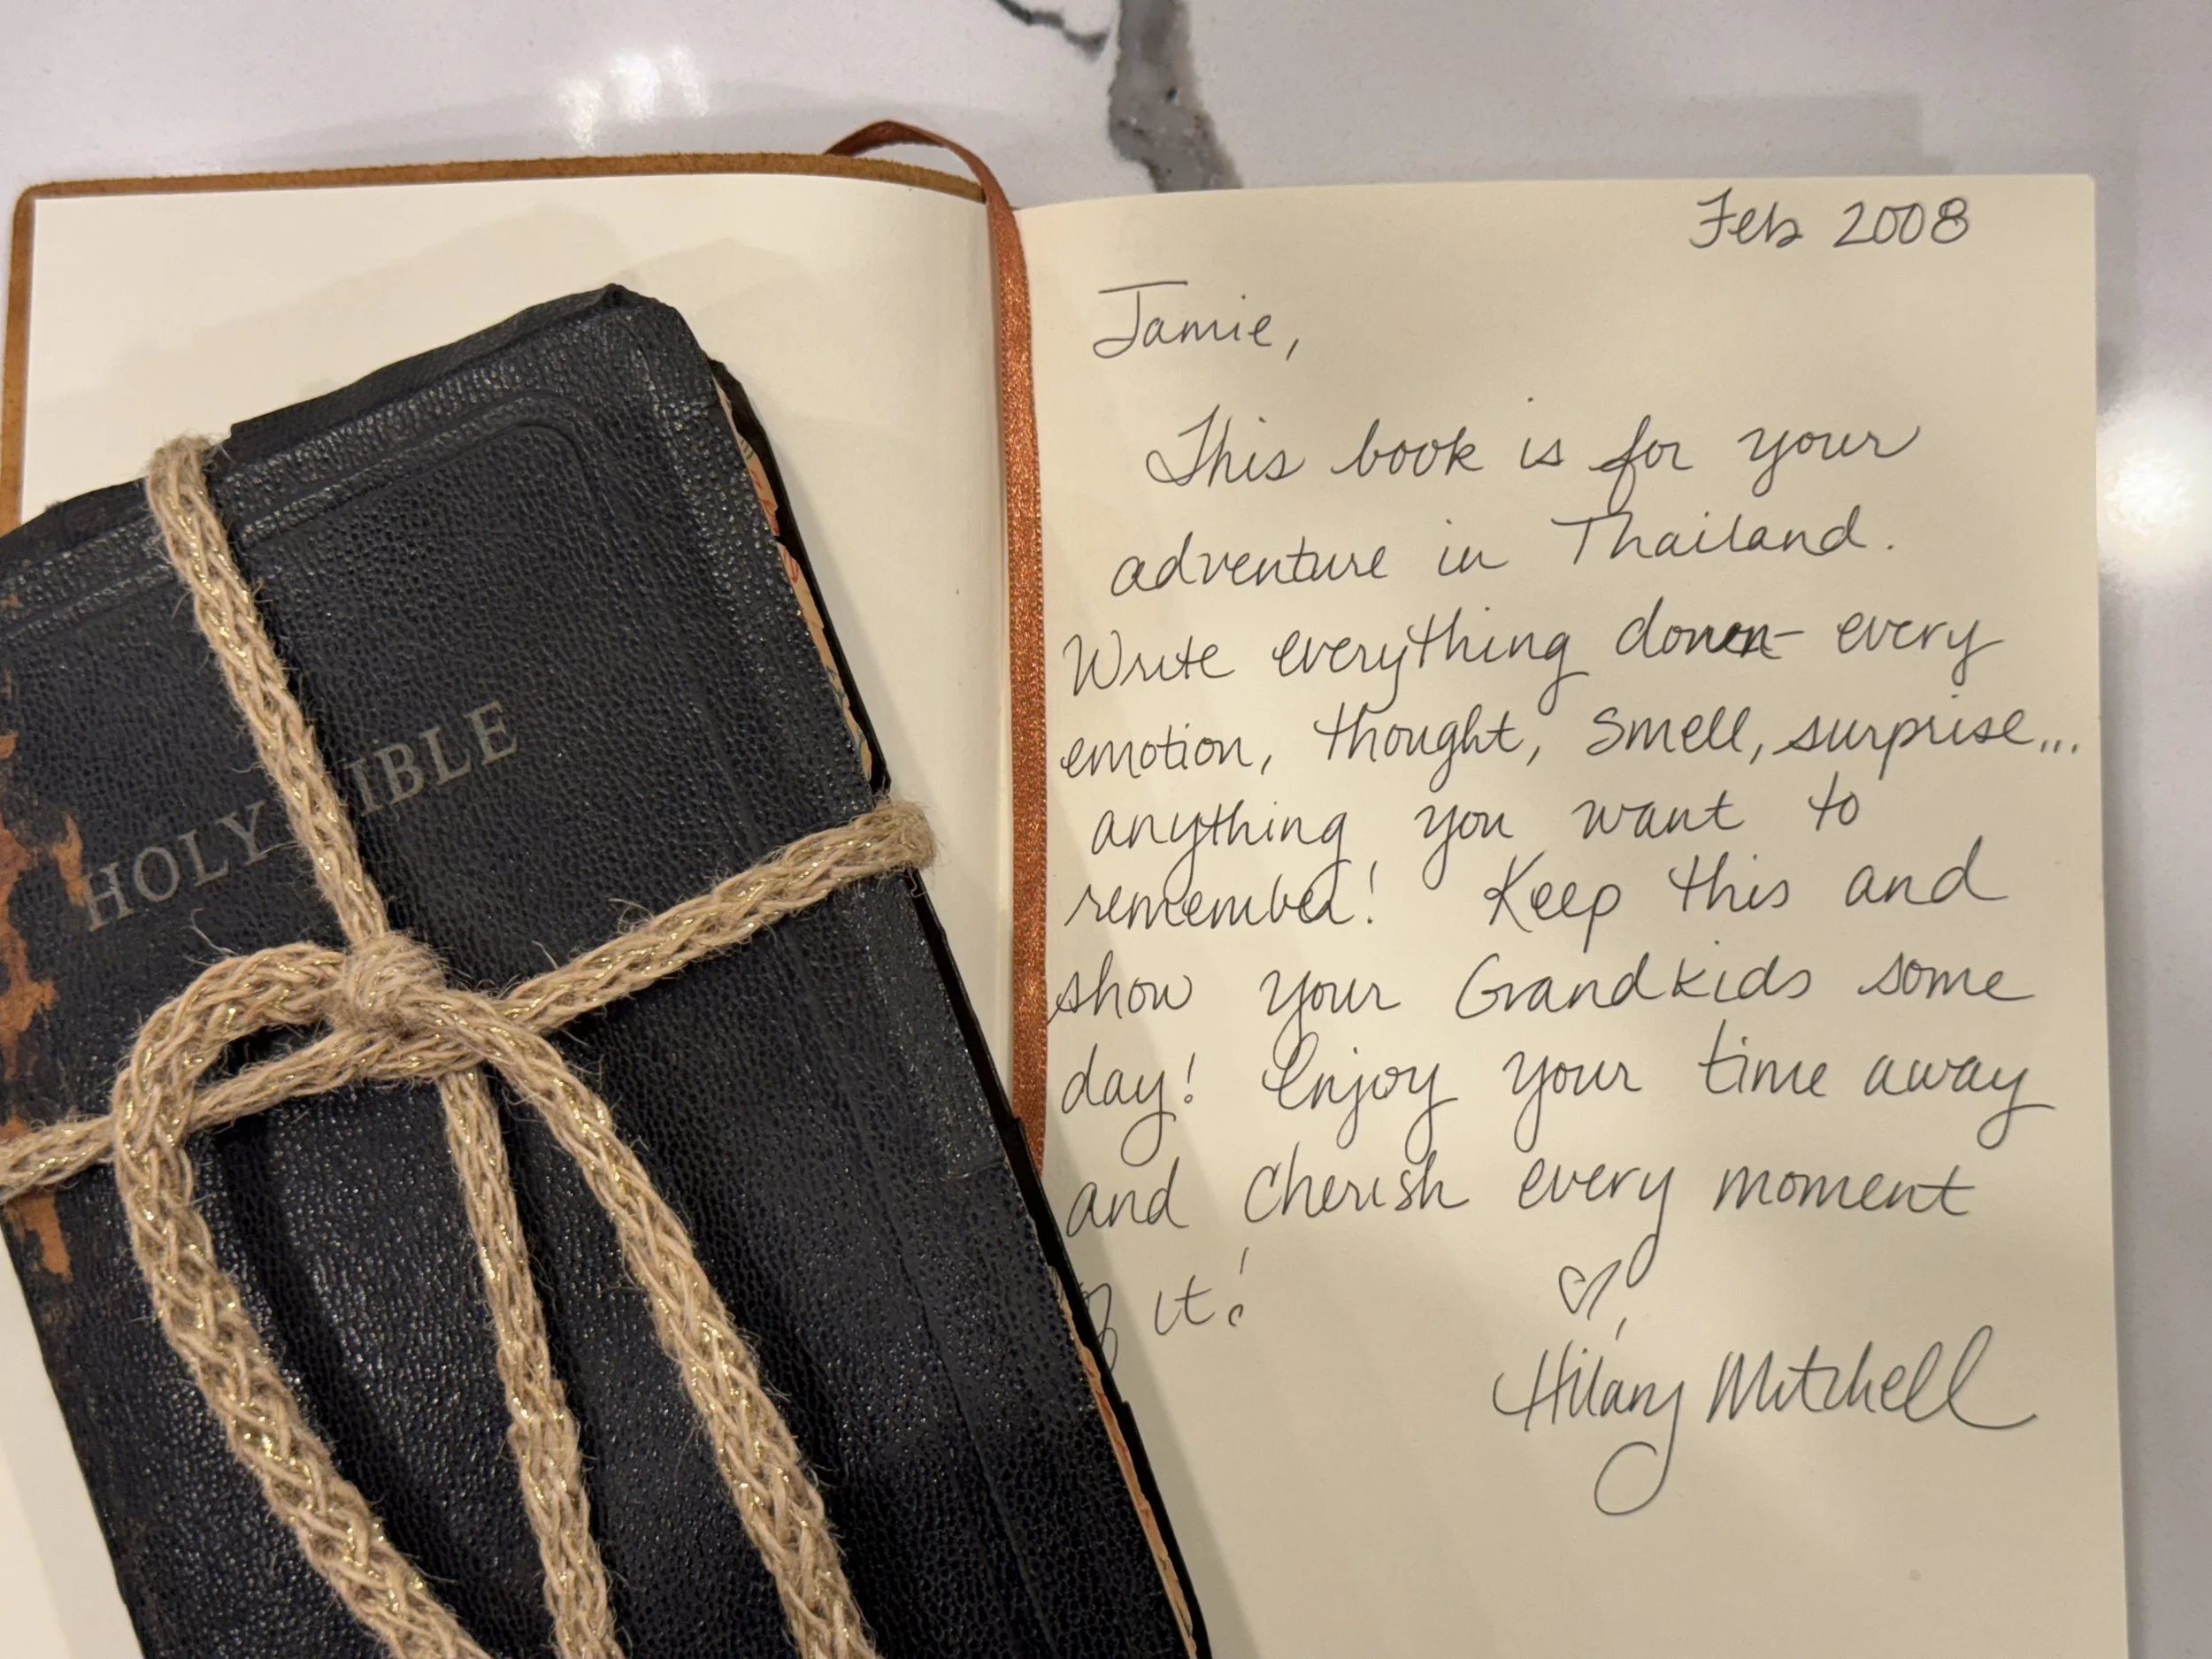 HOLY IBLE
Feb 2008
Jamie,
This book is for your
adventure in Thailand.
Write everything down- every
emotion, thought, smell, surprise...
anything you want to
remember! Keep this and
show your Grandkids some
day! Enjoy your time away
and cherish every moment
of it!
♡,
Hilary Mitchell